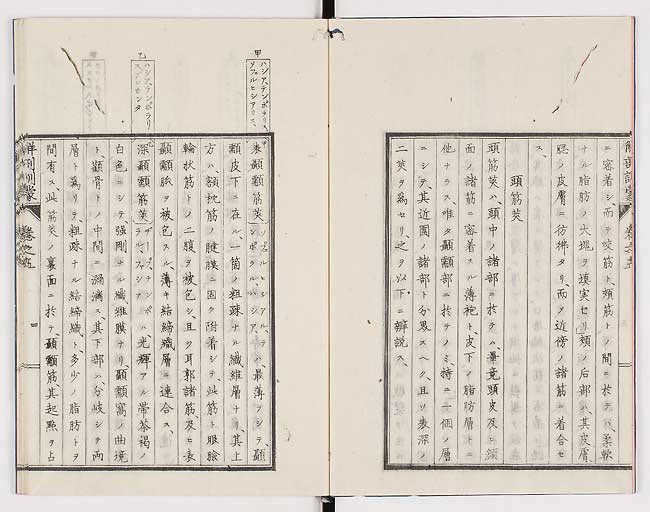 ニ密着シ、而テ咬筋ト、頬筋トノ間ニ於テハ、柔軟
ナル脂肪ノ大塊ヲ填実セリ、頬ノ后部ハ、其皮膚、
ノ皮膚ニ彷彿タリ、而ヲ近傍ノ諸筋ニ着合セ
ス、
頭筋筴
頭筋筴ハ、頭中ノ諸部ニ於テハ、畢竟頭皮及ヒ顔
面ノ諸筋ニ密着スル薄袍ト、皮下ノ脂肪層トニ
他ナラス、唯タ顳顬部ニ於テノミ、特ニ二個ノ層
ニシテ、其近囲ノ諸部ト分界スヘク、且ツ表深ノ
二筴ヲ為セリ、之ヲ以下ニ辨説ス、
解剖訓蒙
巻之五
甲
ハシアテンポラリ
乙
ハシアテンポラリ
表顳顬筋筴
ハ、最薄クシテ、顳
顬皮下ニ在ル一箇ノ粗疎ナル繊維層ナリ、其上
方ハ、額枕筋ノ腱膜ニ固ク附着シテ、此筋ト眼瞼
輪状筋トノ二腹ヲ被包シ、且ツ耳郭諸筋及ヒ表
顳顬脈ヲ被包スル、薄キ結締織層ニ連合ス、
深顳顬筋筴
ハ光輝アル帯茶褐ノ
白色ニシテ、強剛ナル繊維膜ナリ、顳顬窩ノ曲境
ト、顴骨トノ中間ニ瀰漫ス、其下部ハ、分岐シテ両
層ト為リテ、粗疎ナル結締織ト、多少ノ脂肪トヲ
間有ス、此筋筴ノ裏面ニ於テ、顳顬筋、其起點ヲ占
解剖訓蒙
巻之五